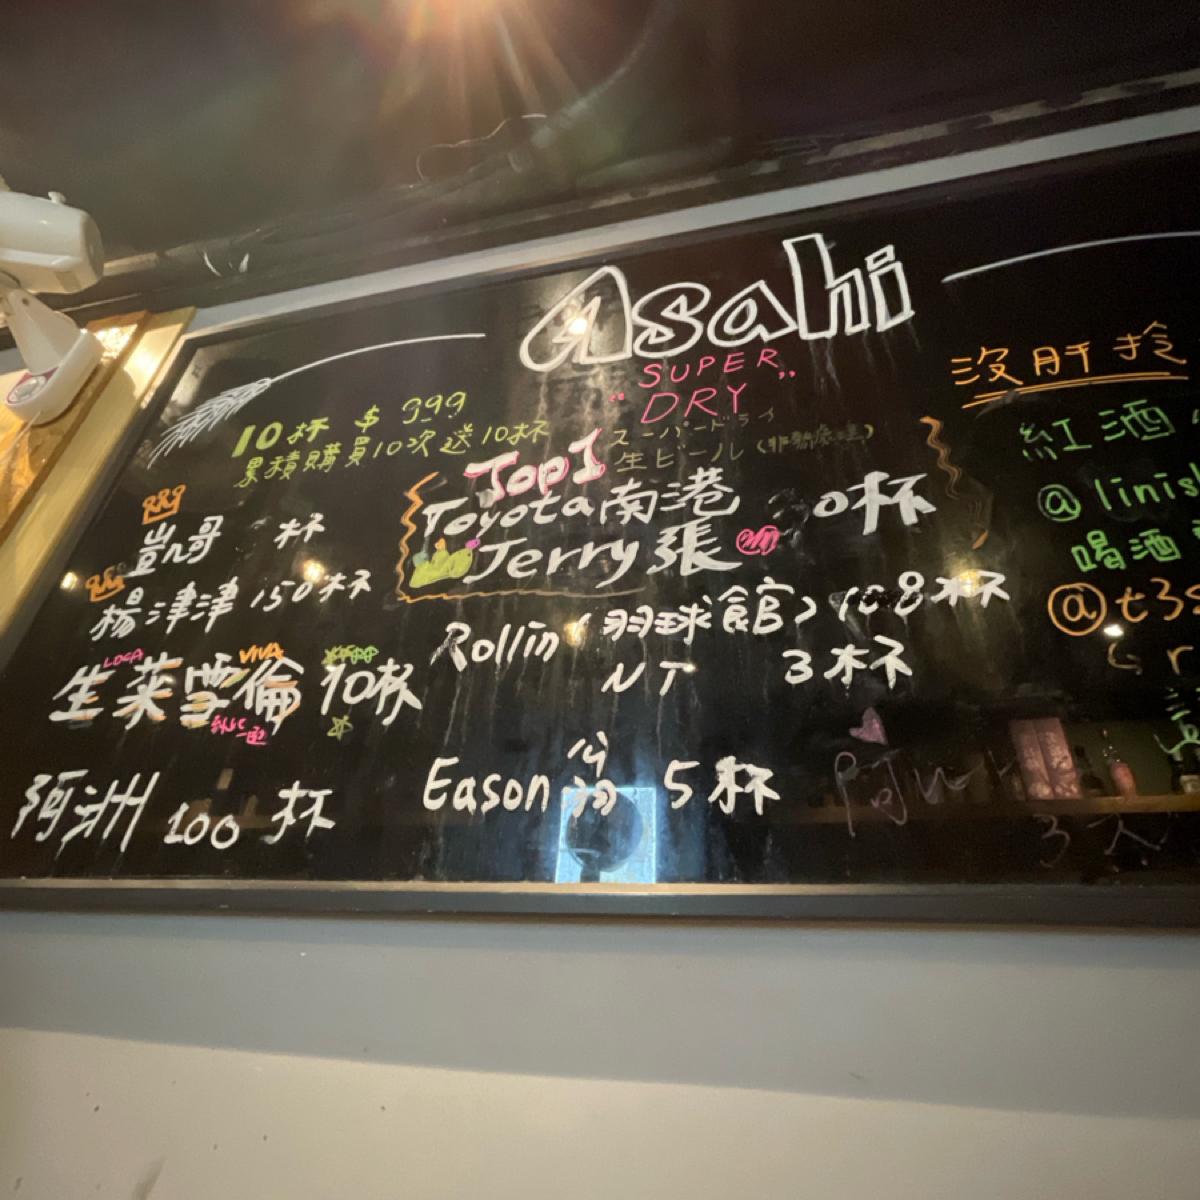 Asahi
"SUPER DRY"
スーパードライ
生ビール
10杯 $ 999
累積購買10次送10杯
Top1
Toyota南港 0杯
Jerry張
凱哥 杯
楊津津 150杯
Rollin（羽球館） 108杯
NT 3杯
LOCA VIVA
生萊雪倫 90杯
阿洲 100杯
Eason 公 翁 5杯
沒肝拴
紅酒
@linis
喝酒
@t3